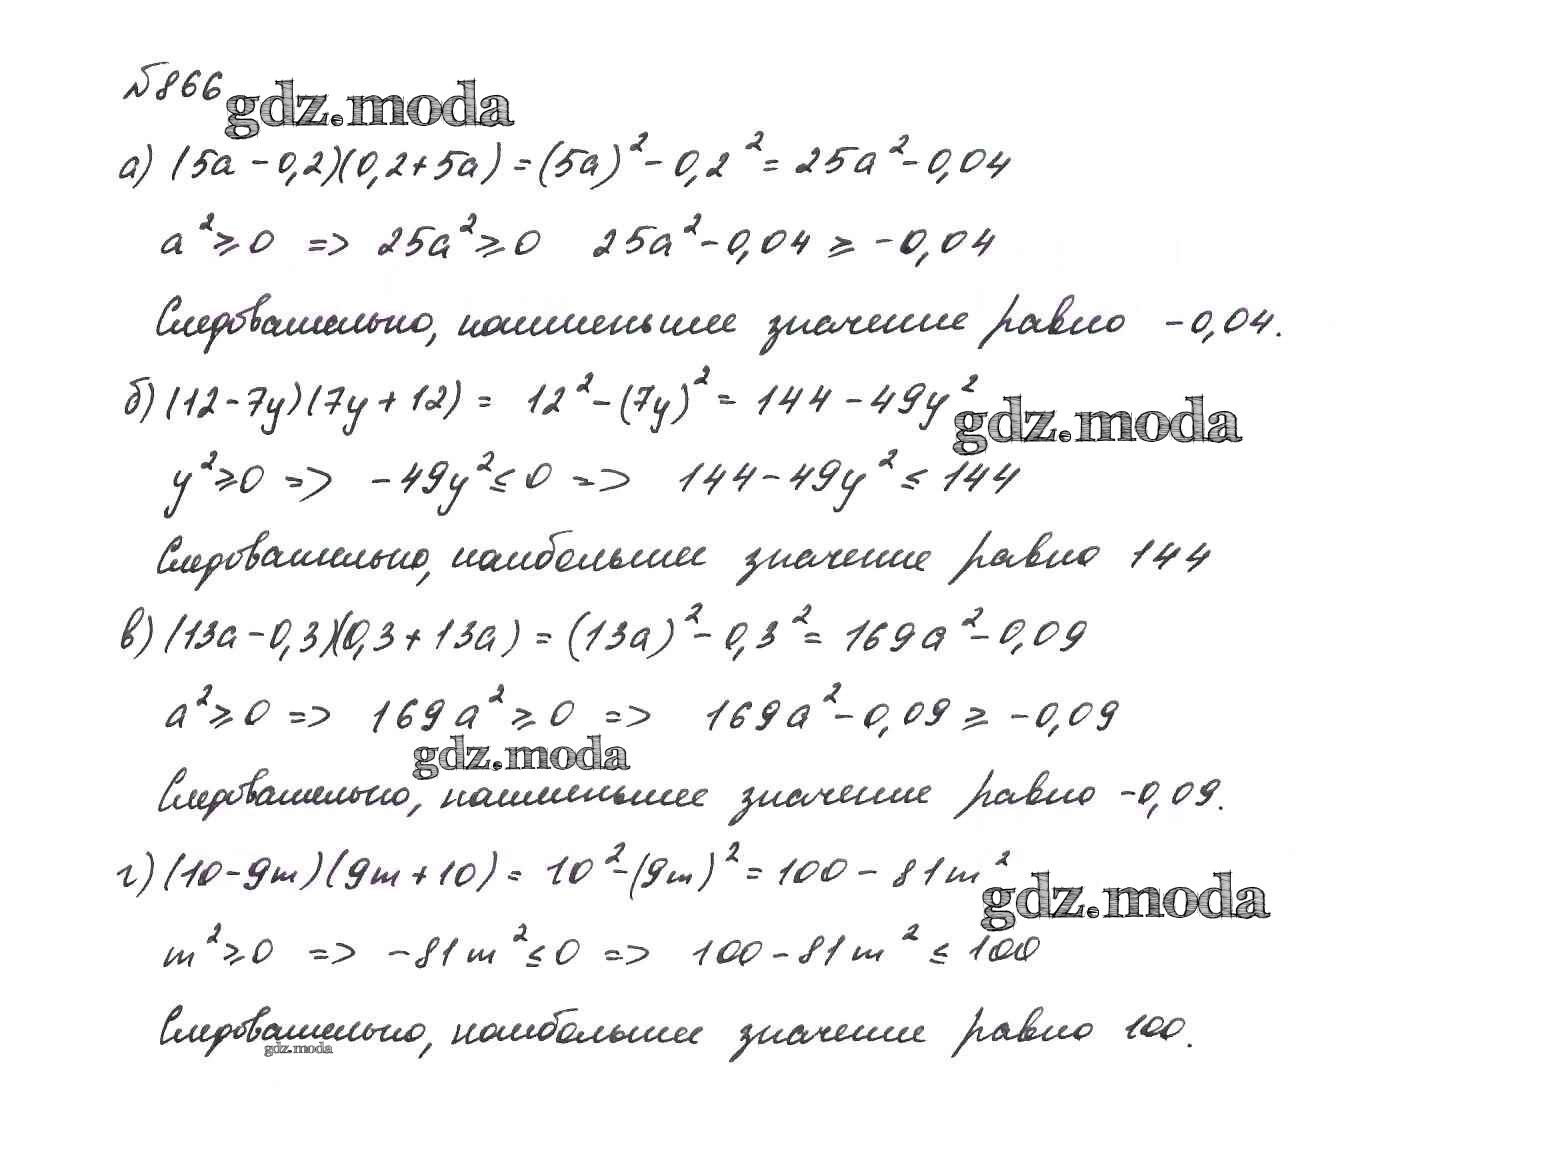 №866
gdz.moda
а) (5a - 0,2)(0,2 + 5a) = (5a)² - 0,2² = 25a² - 0,04
a² ≥ 0 => 25a² ≥ 0 25a² - 0,04 ≥ -0,04
Следовательно, наименьшее значение равно -0,04.
б) (12 - 7y)(7y + 12) = 12² - (7y)² = 144 - 49y²
gdz.moda
y² ≥ 0 => -49y² ≤ 0 => 144 - 49y² ≤ 144
Следовательно, наибольшее значение равно 144
в) (13a - 0,3)(0,3 + 13a) = (13a)² - 0,3² = 169a² - 0,09
a² ≥ 0 => 169a² ≥ 0 => 169a² - 0,09 ≥ -0,09
gdz.moda
Следовательно, наименьшее значение равно -0,09.
г) (10 - 9m)(9m + 10) = 10² - (9m)² = 100 - 81m²
gdz.moda
m² ≥ 0 => -81m² ≤ 0 => 100 - 81m² ≤ 100
Следовательно, наибольшее значение равно 100.
gdz.moda